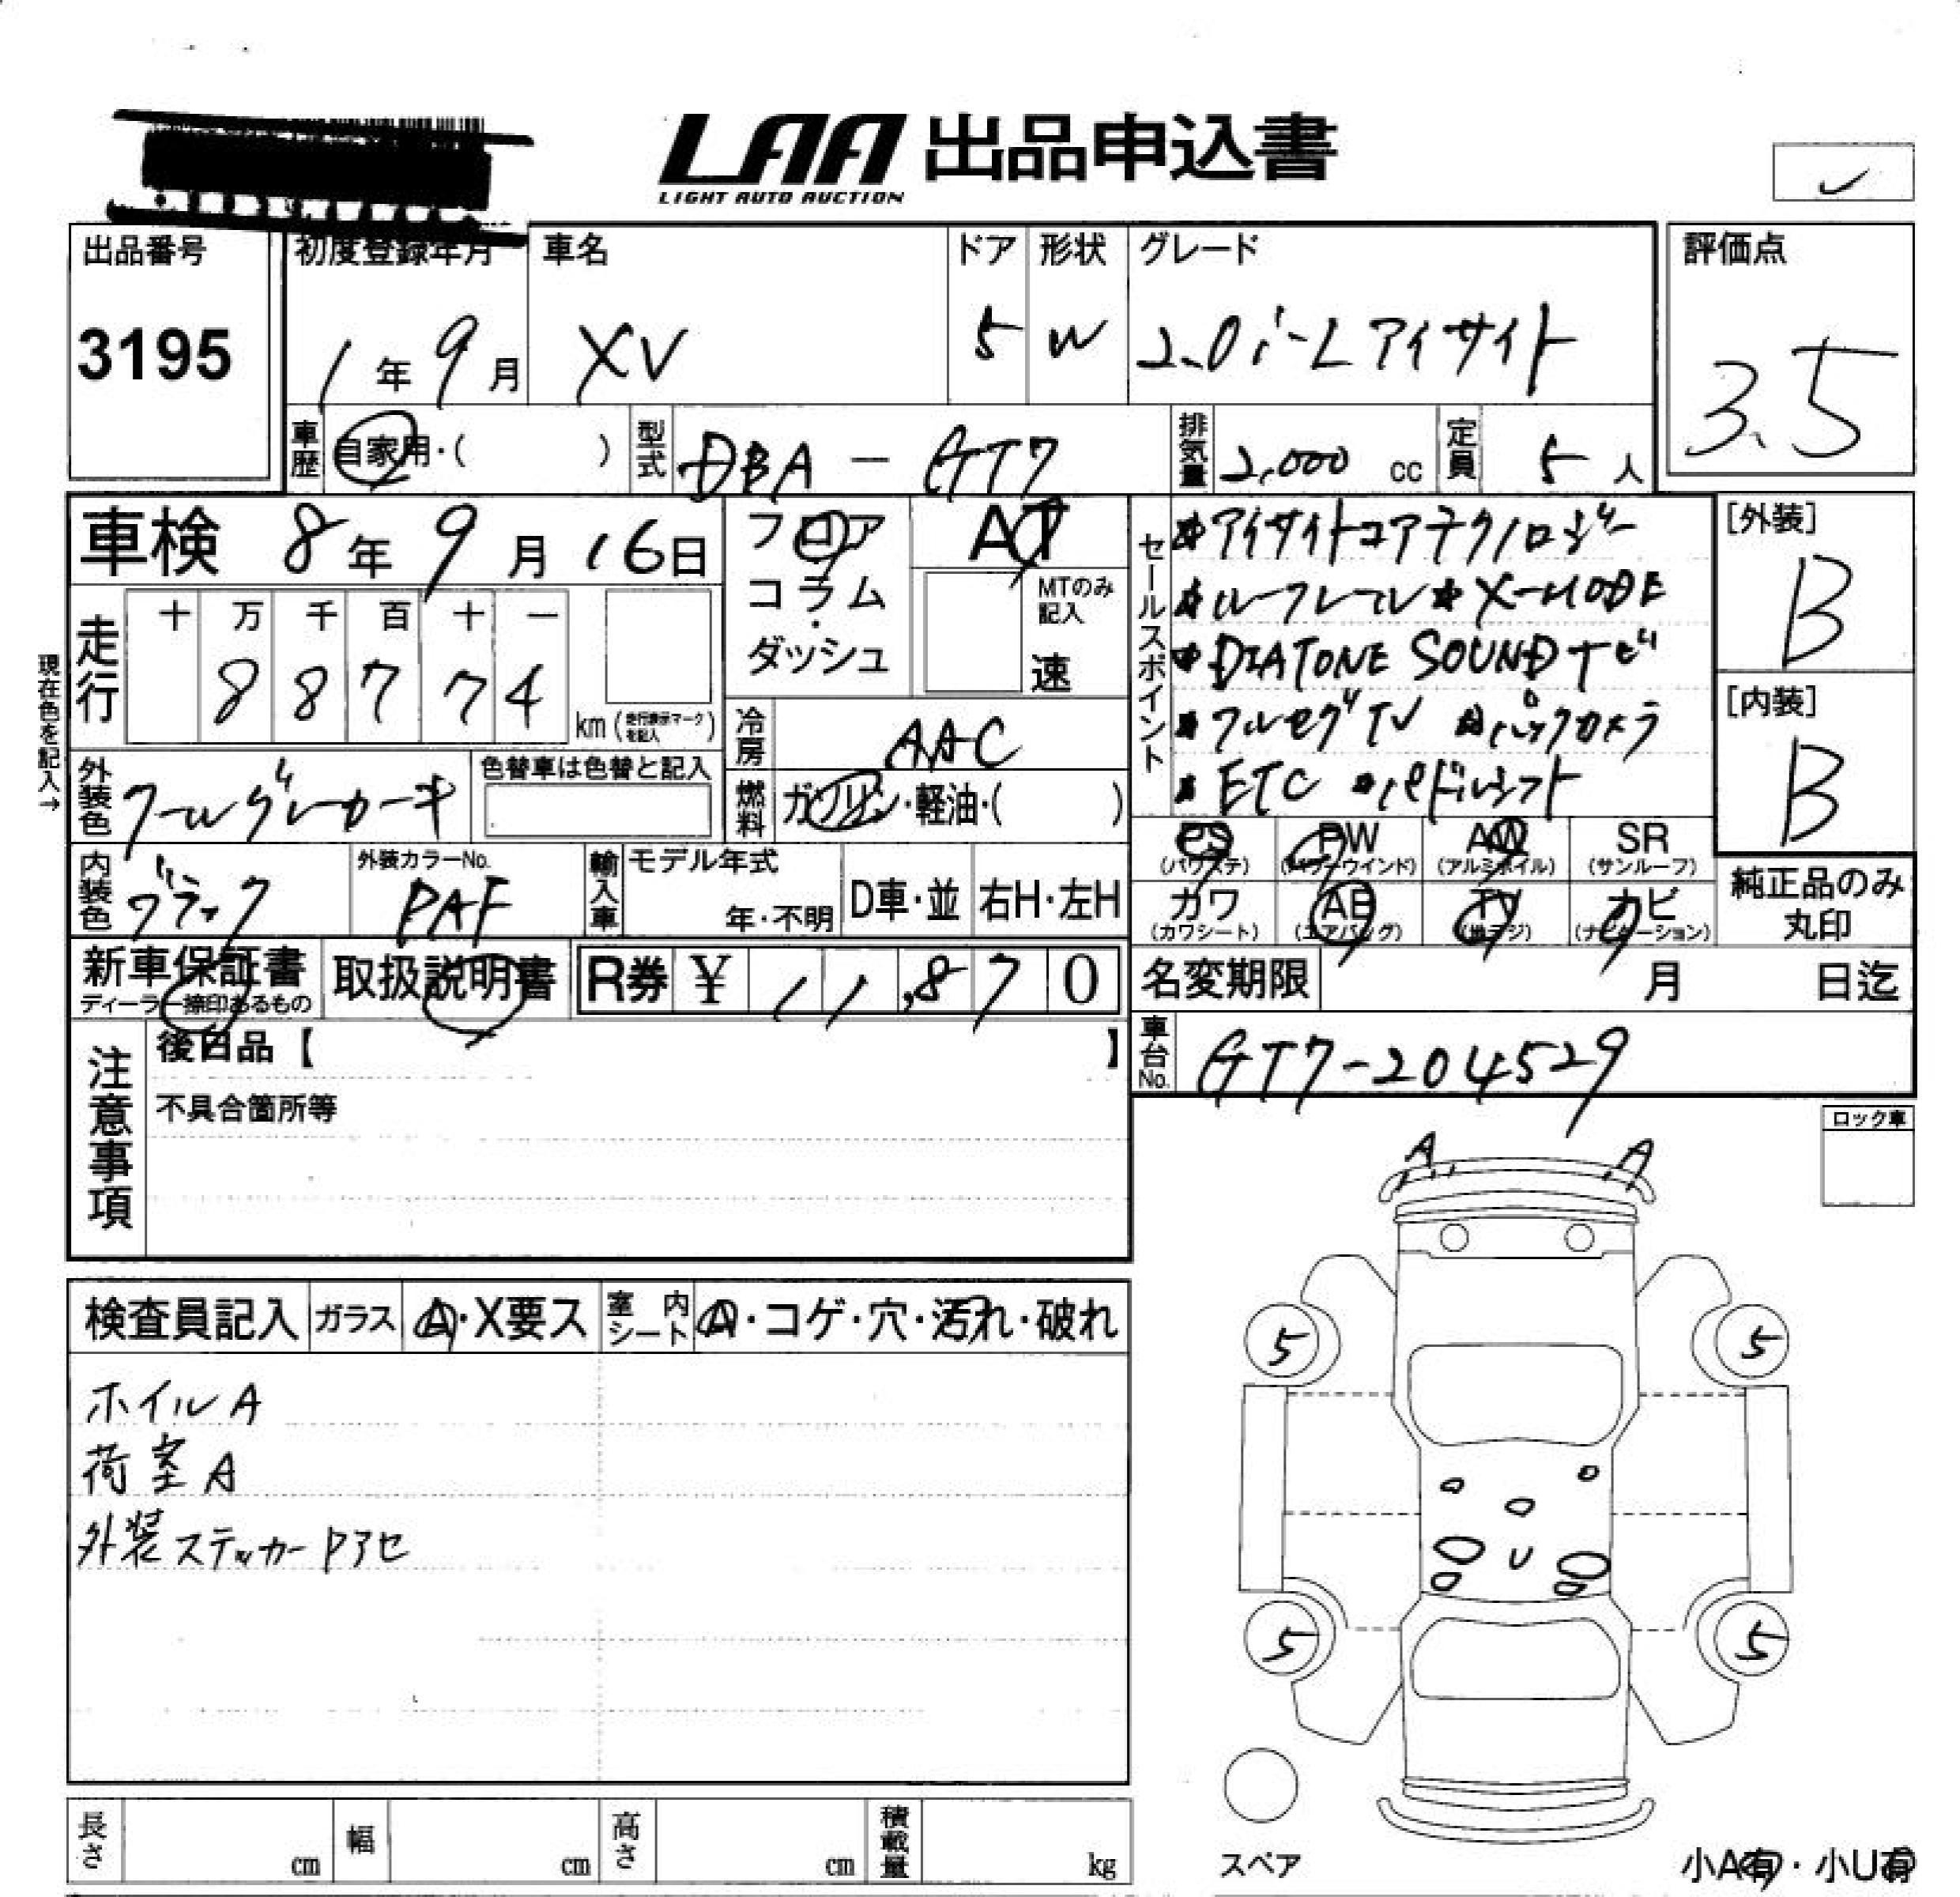 LAA 出品申込書
LIGHT AUTO AUCTION
出品番号 初度登録年月 車名 ドア 形状 グレード 評価点
3195 1年9月 XV 5 W 2.0i-Lアイサイト 3.5
車歴 自家用・( ) 型式 DBA-GT7 排気量 2,000 cc 定員 5人
車検 8年9月16日 フロア AT
コラム・ダッシュ MTのみ記入 速
セールスポイント
*アイサイトコアテクノロジー
*ルーフレール *X-MODE
*DIATONE SOUNDナビ
*フルセグTV *バックカメラ
*ETC *パドルシフト
[外装] B
[内装] B
現在色を記入→
走行 十 万 千 百 十 一
8 8 7 7 4 km(走行表示マークを記入)
冷房 AAC
外装色 クールグレーカーキ 色替車は色替と記入
燃料 ガソリン・軽油・( )
PS (パワステ) PW (パワーウインド) AW (アルミホイル) SR (サンルーフ)
カワ (カワシート) AB (エアバッグ) TV (地デジ) ナビ (ナビゲーション)
純正品のみ丸印
内装色 ブラック 外装カラーNo. PAF 輸入車 モデル年式 年・不明 D車・並 右H・左H
新車保証書 ディーラー捺印あるもの 取扱説明書 R券 ¥ 11,870
名変期限 月 日迄
車台No. GT7-204529
注意事項
後日品【 】
不具合箇所等
ロック車
A A
検査員記入 ガラス A・X要ス 室内シート A・コゲ・穴・汚れ・破れ
ホイルA
荷室A
外装ステッカーアセ
5 5
U
5 5
長さ cm 幅 cm 高さ cm 積載量 kg
スペア
小A有・小U有